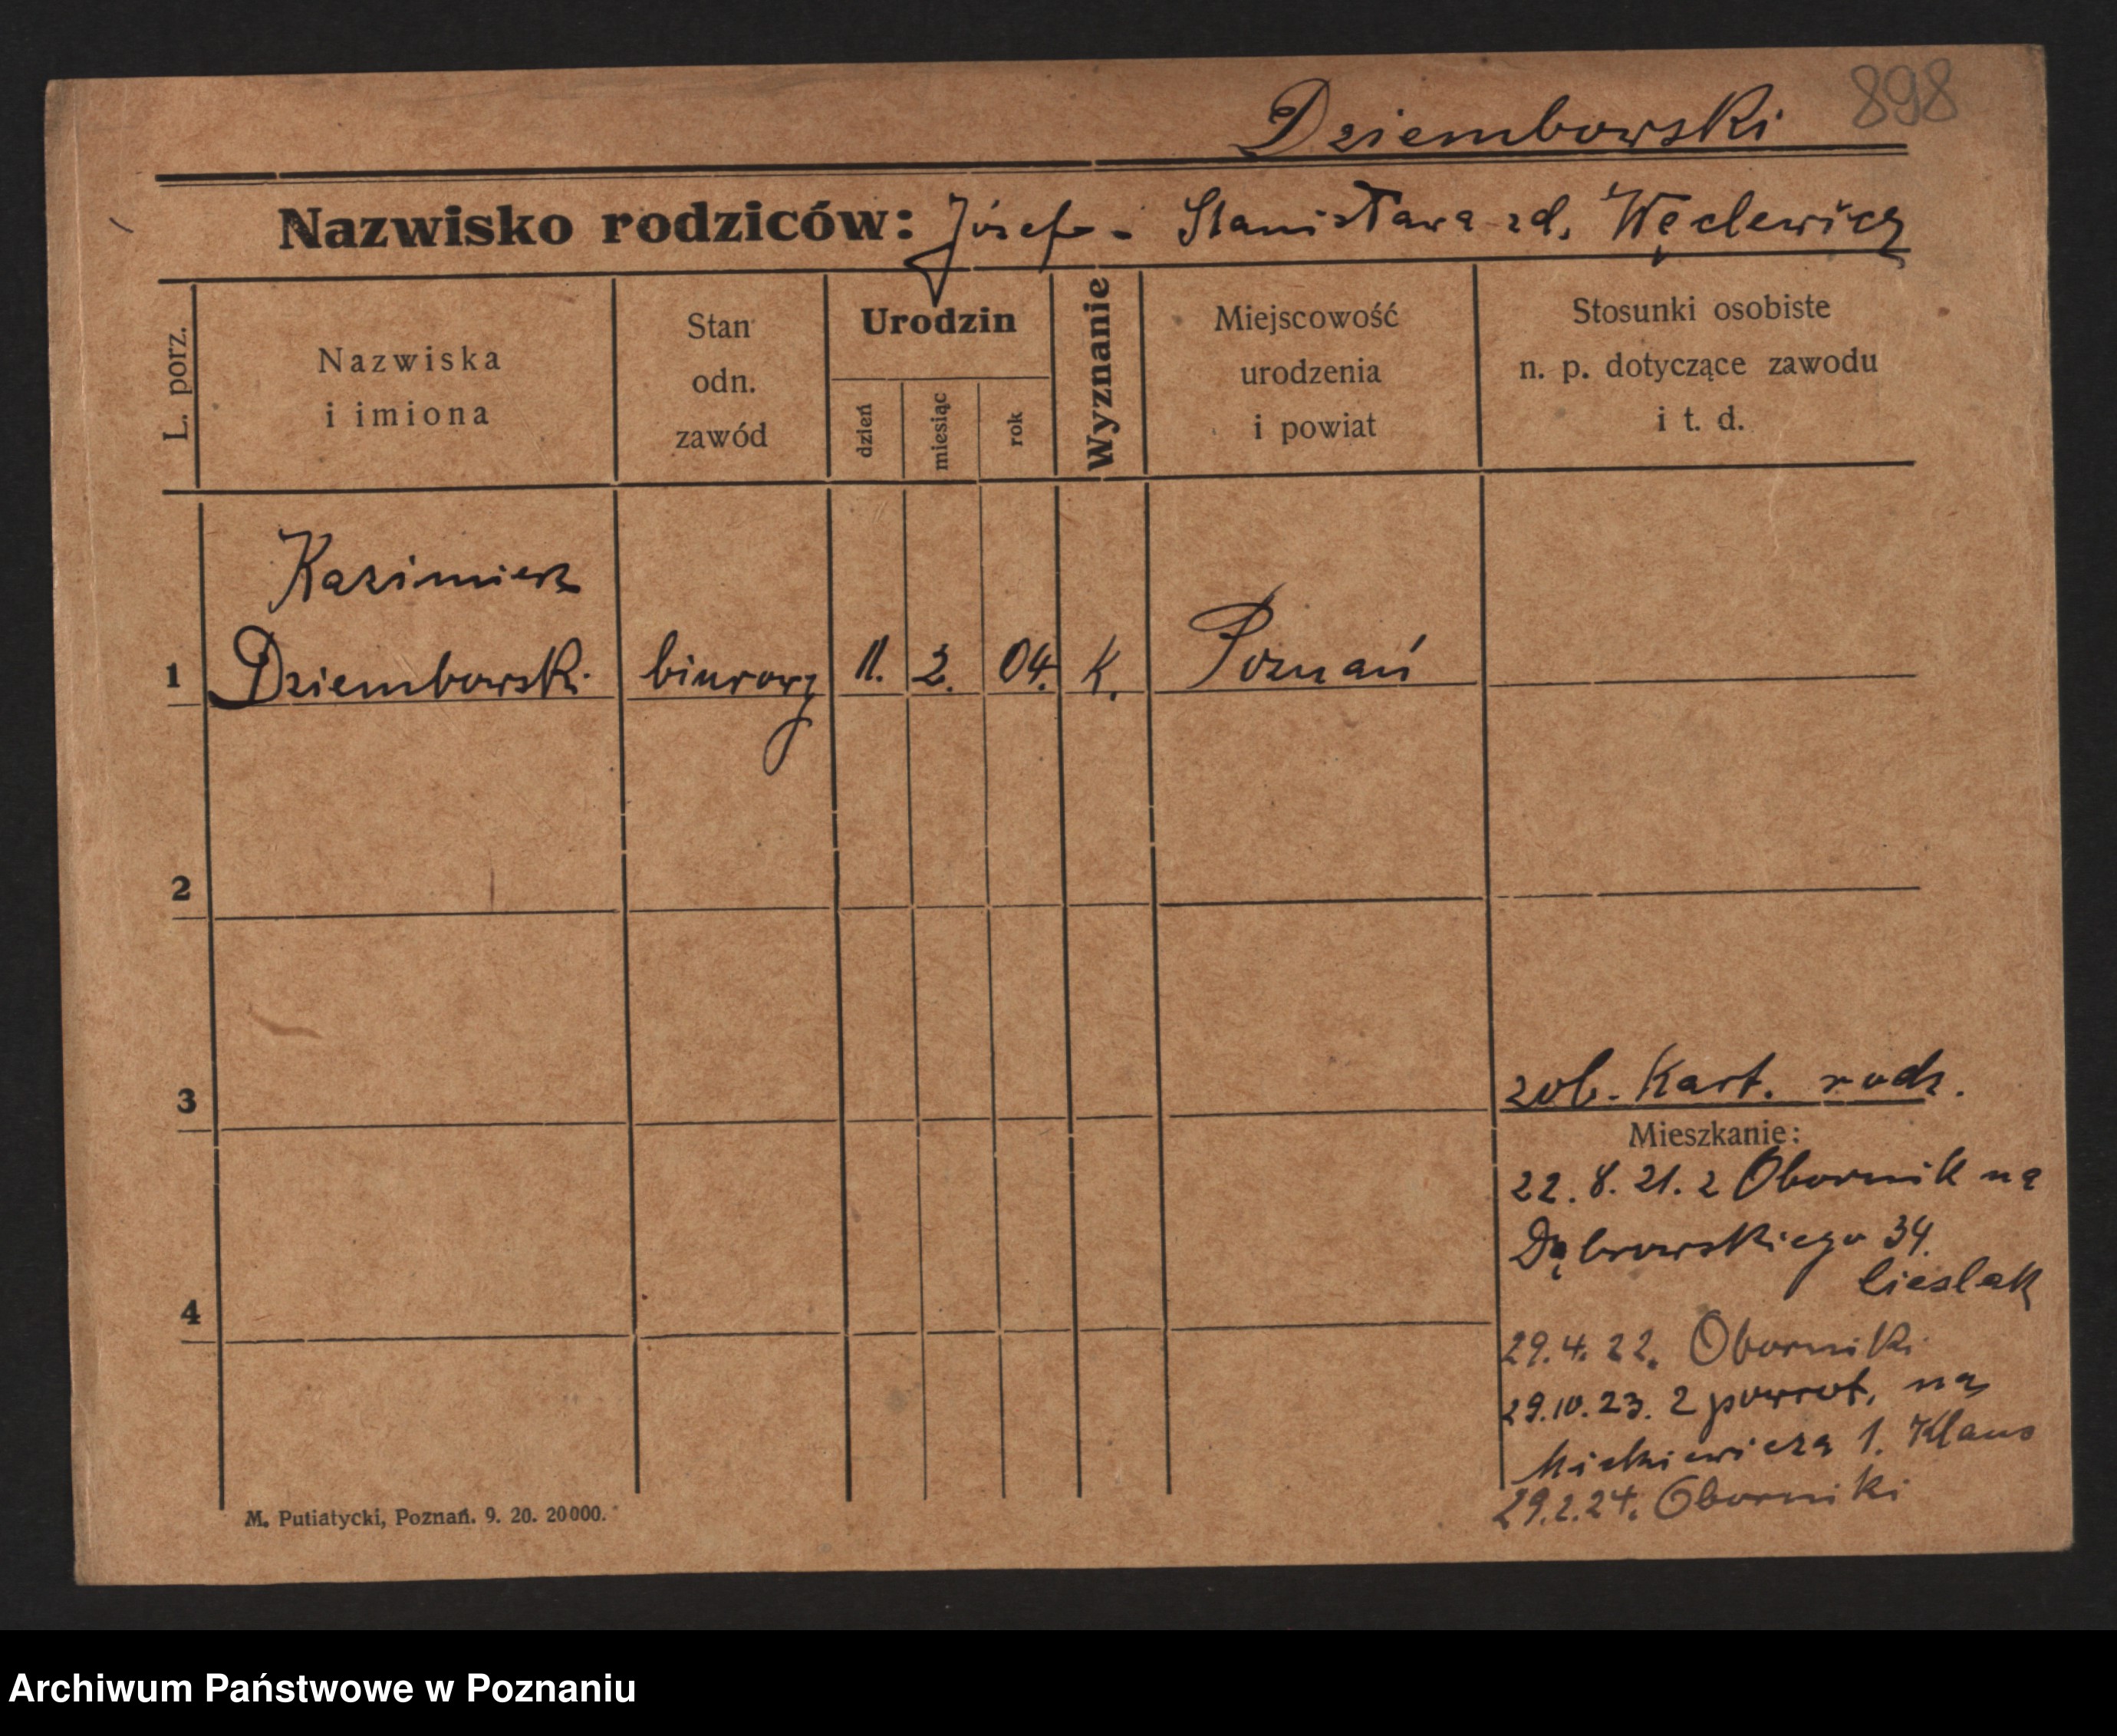 Dziembowski 898
Nazwisko rodziców: Józef - Stanisława zd. Węclewicz
L. porz.
Nazwiska
i imiona
Stan
odn.
zawód
Urodzin
dzień
miesiąc
rok
Wyznanie
Miejscowość
urodzenia
i powiat
Stosunki osobiste
n. p. dotyczące zawodu
i t. d.
Kazimierz
1 Dziembowski biurowy 11. 2. 04. K. Poznań
2
3
zob. Kart. rodz.
Mieszkanie:
22. 8. 21. z Obornik na
Dąbrowskiego 34.
Cieslak
4
29. 4. 22. Oborniki
29. 10. 23. z powrot. na
Mickiewicza 1. Klaus
29. 2. 24. Oborniki
M. Putiatycki, Poznań. 9. 20. 20000.
Archiwum Państwowe w Poznaniu